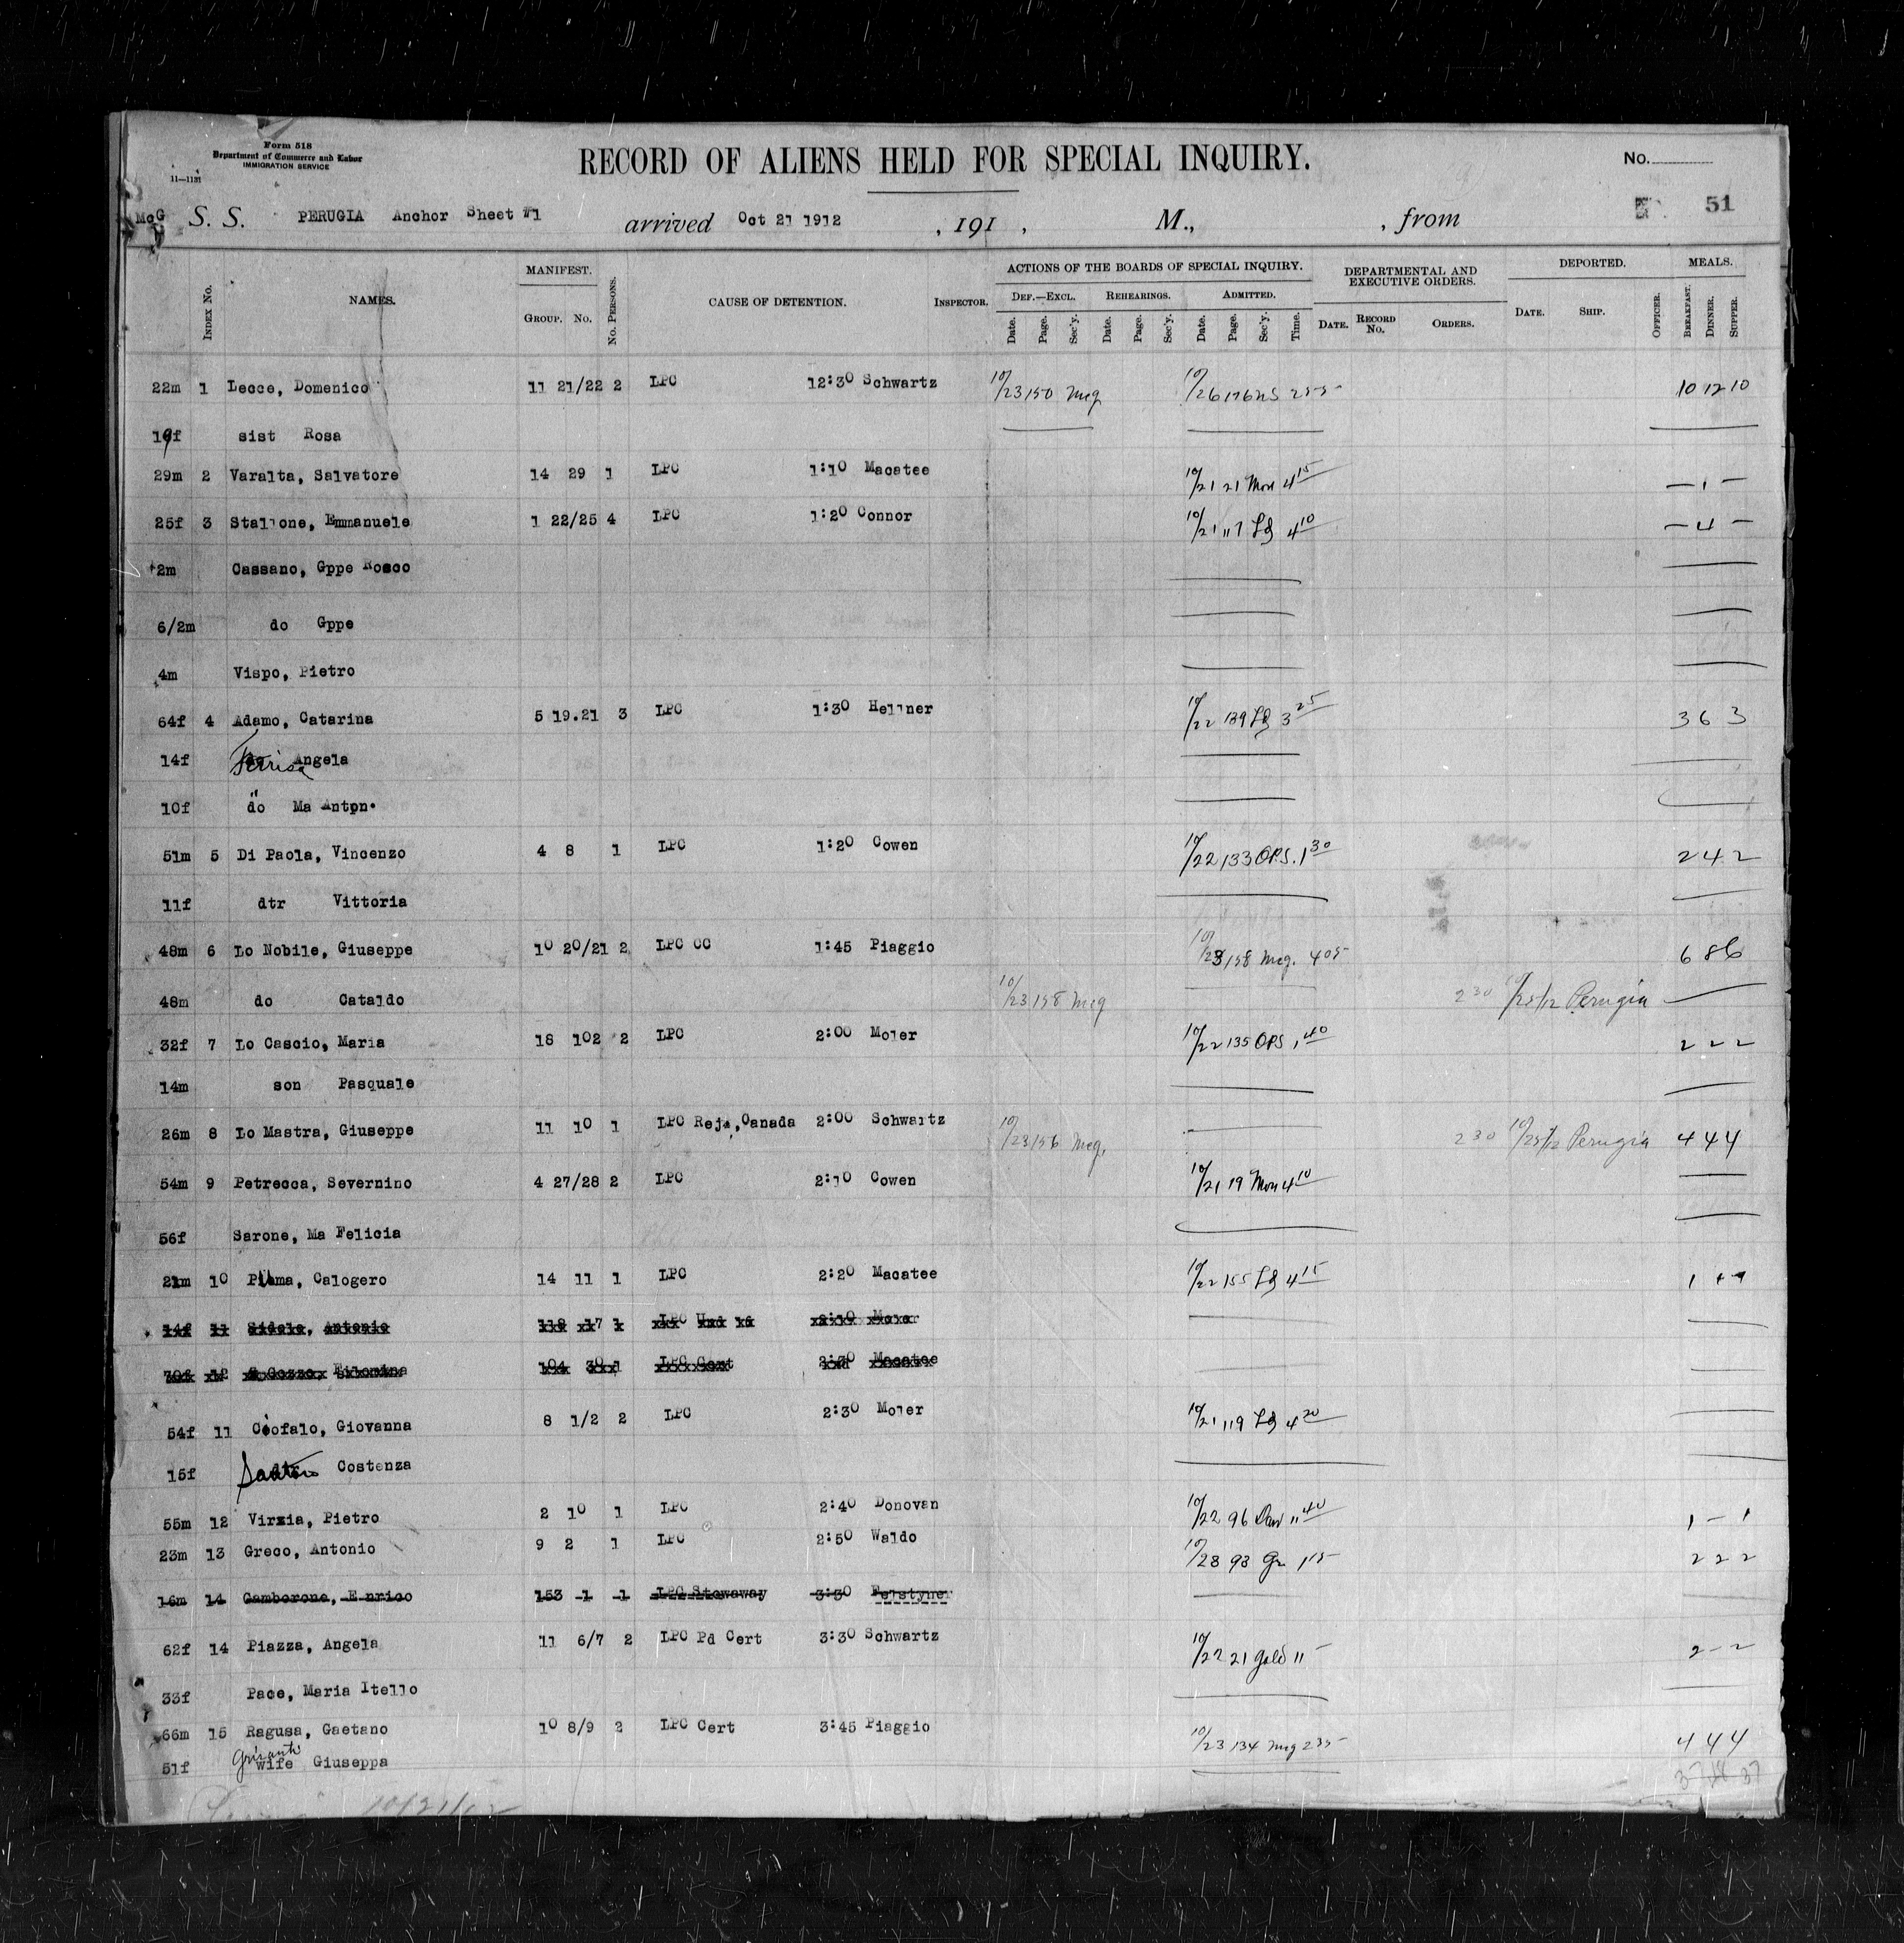 Form 518
Department of Commerce and Labor
IMMIGRATION SERVICE
11—1131
RECORD OF ALIENS HELD FOR SPECIAL INQUIRY.
No.
51
McG S. S. PERUGIA Anchor Sheet #1 arrived Oct 21 1912 , 191 , M., , from
INDEX No. NAMES. MANIFEST. GROUP. No. No. PERSONS. CAUSE OF DETENTION. INSPECTOR. ACTIONS OF THE BOARDS OF SPECIAL INQUIRY. DEF.—EXCL. Date. Page. Sec'y. REHEARINGS. Date. Page. Sec'y. ADMITTED. Date. Page. Sec'y. Time. DEPARTMENTAL AND EXECUTIVE ORDERS. DATE. RECORD No. ORDERS. DEPORTED. DATE. SHIP. OFFICER. MEALS. BREAKFAST. DINNER. SUPPER.
22m 1 Lecce, Domenico 11 21/22 2 LPC 12:30 Schwartz 10/23 150 McG 10/26 10 12 10
19f sist Rosa
29m 2 Varalta, Salvatore 14 29 1 LPC 1:10 Macatee 10/21 21 Mon 4 15 — 1 —
25f 3 Stallone, Emmanuele 1 22/25 4 LPC 1:20 Connor 10/21 117 4 10 — 4 —
2m Cassano, Gppe Rosco
6/2m do Gppe
4m Vispo, Pietro
64f 4 Adamo, Catarina 5 19.21 3 LPC 1:30 Hellner 10/22 139 3 25 3 6 3
14f Angela
10f do Ma Anton.
51m 5 Di Paola, Vincenzo 4 8 1 LPC 1:20 Cowen 10/22 133 OPS. 1 30 2 4 2
11f dtr Vittoria
48m 6 Lo Nobile, Giuseppe 10 20/21 2 LPC CC 1:45 Piaggio 10/23 158 McG. 4 05 6 8 6
48m do Cataldo 10/23 158 McG 2 30 10/25/12 Perugia
32f 7 Lo Cascio, Maria 18 102 2 LPC 2:00 Moler 10/22 135 OPS 1 40 2 2 2
14m son Pasquale
26m 8 Lo Mastra, Giuseppe 11 10 1 LPC Rej. Canada 2:00 Schwartz 10/23 156 McG. 2 30 10/25/12 Perugia 4 4 4
54m 9 Petrecca, Severnino 4 27/28 2 LPC 2:10 Cowen 10/21 19 Mon 4 10
56f Sarone, Ma Felicia
21m 10 Calogero 14 11 1 LPC 2:20 Macatee 10/22 155 4 15
14f 11 Antonio 17
70f 12 Gozzo, Filomina 104 30 1 LPC Cert 2:30 Macatee
54f 11 Ciofalo, Giovanna 8 1/2 2 LPC 2:30 Moler 10/21 119 4 20
15f Costenza
55m 12 Virzia, Pietro 2 10 1 LPC 2:40 Donovan 10/22 96 11 40 1 — 1
23m 13 Greco, Antonio 9 2 1 LPC 2:50 Waldo 10/28 93 Gr 1 15 2 2 2
16m 14 Gamborone, Enrico 153 1 1 LPC Stowaway 3:30 Felstyner
62f 14 Piazza, Angela 11 6/7 2 LPC Pd Cert 3:30 Schwartz 10/22 21 Gold 11 2 — 2
33f Pace, Maria Itello
66m 15 Ragusa, Gaetano 10 8/9 2 LPC Cert 3:45 Piaggio 10/23 134 McG 2 35 4 4 4
51f wife Giuseppa
10/21/12